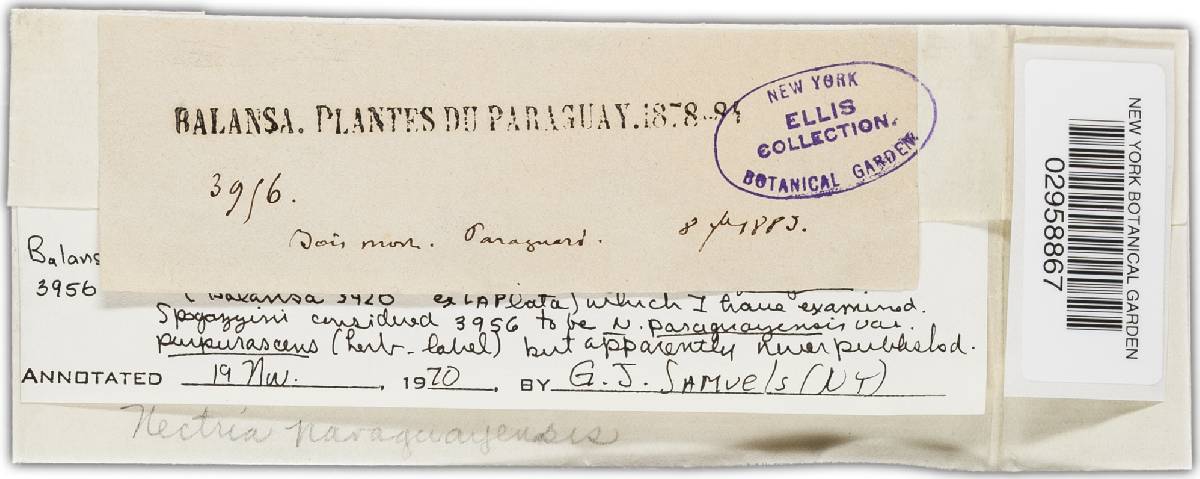 BALANSA. PLANTES DU PARAGUAY. 1878-84
NEW YORK
ELLIS
COLLECTION.
BOTANICAL GARDEN.
3956.
Bois mort. Paraguari. 8 1883.
Balans
3956
(Balansa 3920 ex LAPlata) which I have examined.
Spegazzini considered 3956 to be N. paraguayensis var.
purpurascens (herb. label) but apparently never published.
ANNOTATED 19 Nov. , 1970 , BY G. J. SAMUels (NY)
Nectria paraguayensis
NEW YORK BOTANICAL GARDEN
02958867